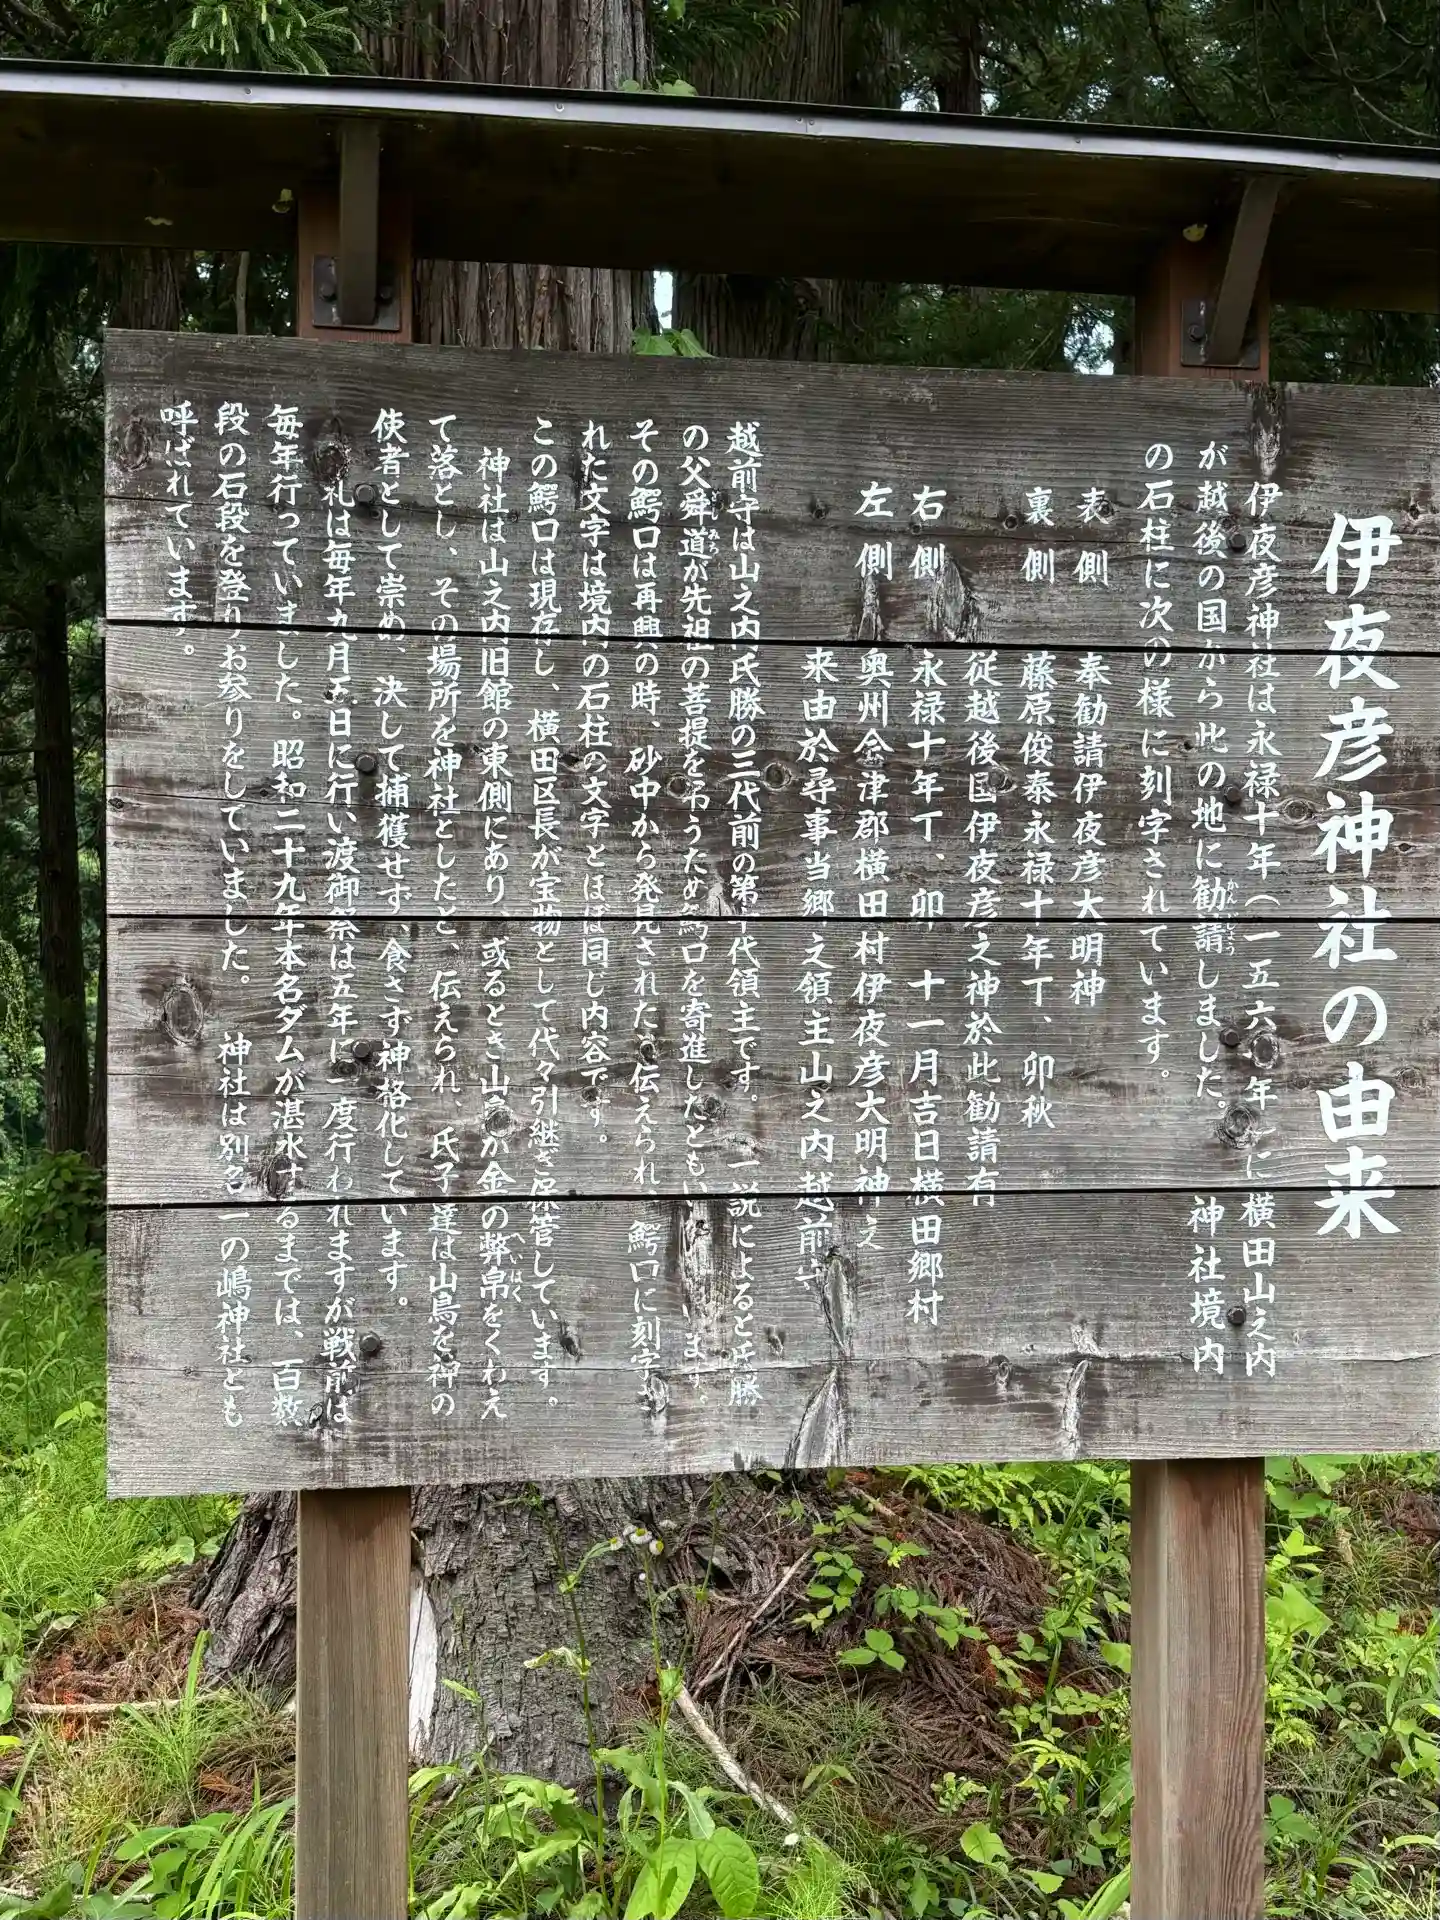 伊夜彦神社の由来
伊夜彦神社は永禄十年(一五六七年)に横田山之内
が越後の国から此の地に勧請しました。神社境内
かんじょう
の石柱に次の様に刻字されています。
表側 奉勧請伊夜彦大明神
裏側 藤原俊泰永禄十年丁、卯秋
従越後国伊夜彦之神於此勧請有
右側 永禄十年丁、卯 十一月吉日横田郷村
左側 奥州会津郡横田村伊夜彦大明神之
来由於尋事当郷之領主山之内越前
越前守は山之内氏勝の三代前の第十代領主です。一説によると氏勝
の父舜道が先祖の菩提を弔うため鰐口を寄進したともいいます。
どみろ
その鰐口は再興の時、砂中から発見されたと伝えられ、鰐口に刻字さ
れた文字は境内の石柱の文字とほぼ同じ内容です。
この鰐口は現存し、横田区長が宝物として代々引継ぎ保管しています。
神社は山之内旧館の東側にあり、或るとき山鳥が金の弊帛をくわえ
へいはく
て落とし、その場所を神社としたと、伝えられ、氏子達は山鳥を神の
使者として崇め、決して捕獲せず、食さず神格化しています。
礼は毎年九月五日に行い渡御祭は五年に一度行われますが戦前は
毎年行っていました。昭和二十九年本名ダムが湛水するまでは、百数
段の石段を登りお参りをしていました。神社は別名一の嶋神社とも
呼ばれています。